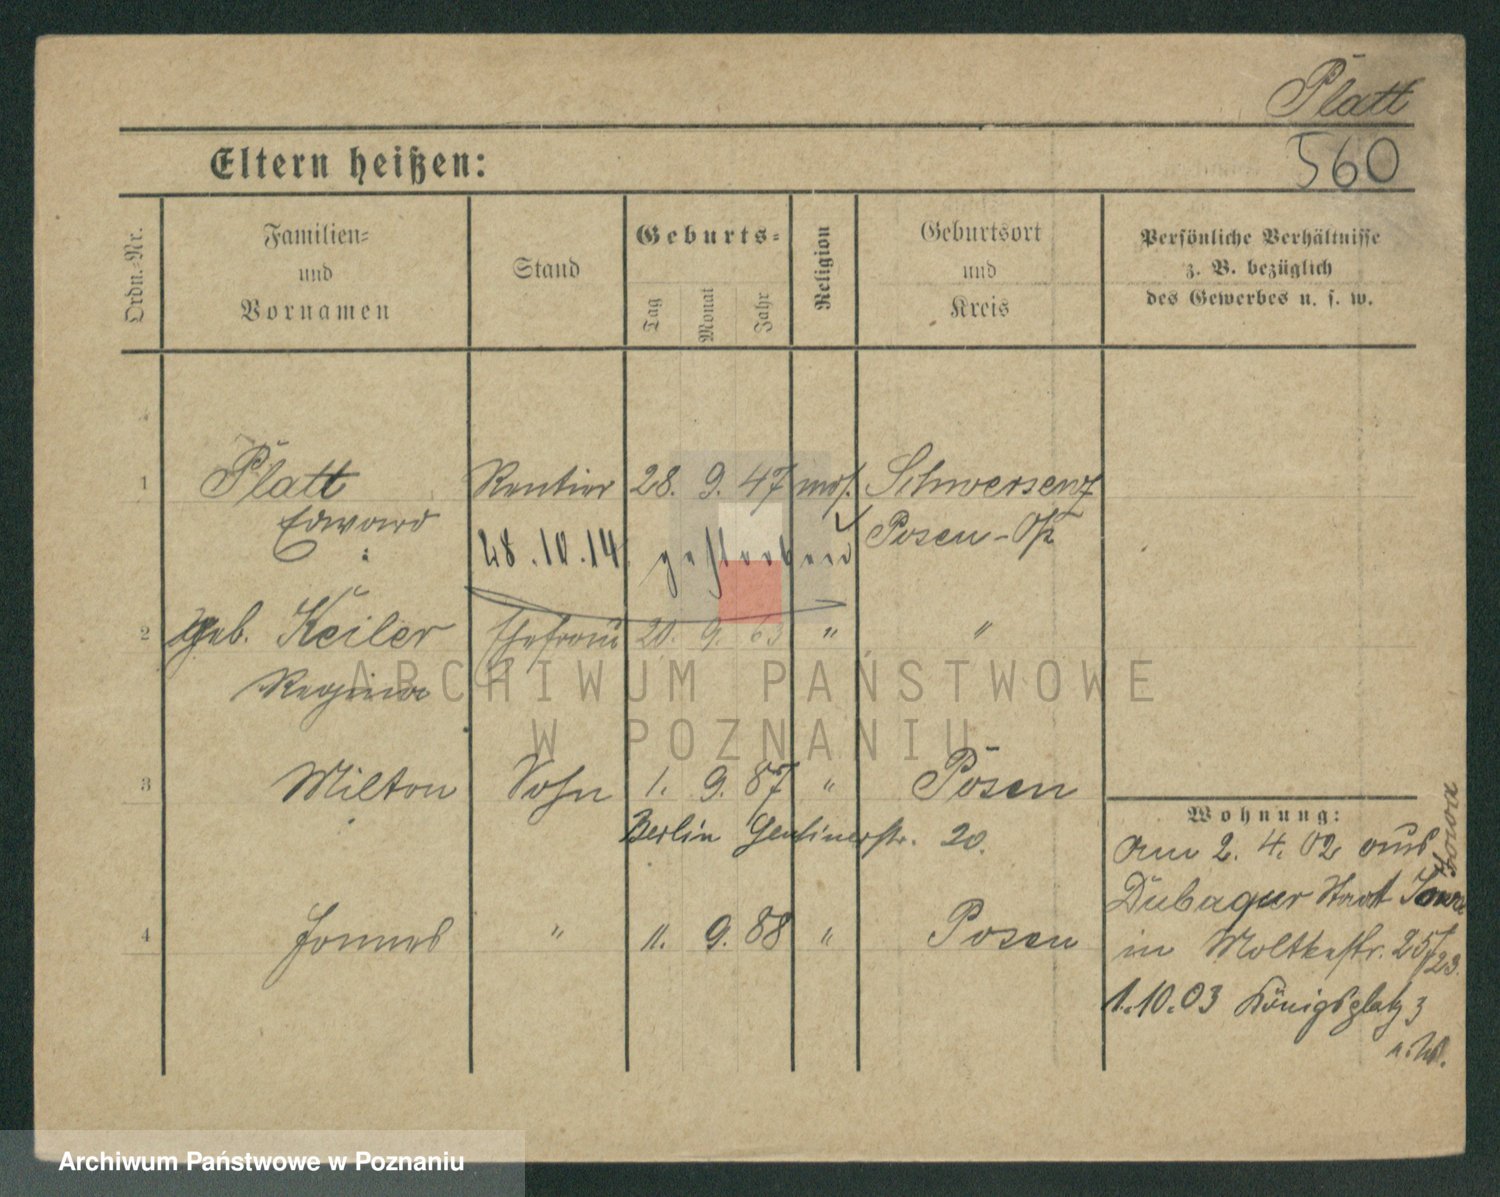 Platt
560
Eltern heißen:
Ordn.-Nr.
Familien-
und
Vornamen
Stand
Geburts-
Tag
Monat
Jahr
Religion
Geburtsort
und
Kreis
Persönliche Verhältnisse
z. B. bezüglich
des Gewerbes u. s. w.
1 Platt Rentier 28. 9. 47 mos. Schwersenz
Edward Posen-Ost
28.10.14 gestorben
2 geb. Keiler Ehefrau 20. 9. 63 " "
Regina
3 Milton Sohn 1. 9. 87 " Posen
Berlin Genthinerstr. 20.
4 " 11. 9. 88 " Posen
Wohnung:
am 2. 4. 02 aus
Iowa
Dubaquer Staat Iowa
in Moltkestr. 25/23.
1.10.03 Königsplatz 3
ARCHIWUM PAŃSTWOWE
W POZNANIU
Archiwum Państwowe w Poznaniu